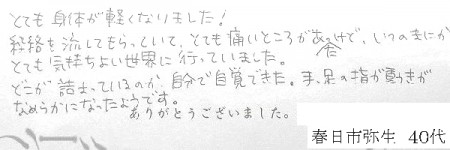 とても身体が軽くなりました！
経絡を流してもらっといて、とても痛いところがあっけで、いつのまにか
とても気持ちよい世界に行っていました。
どこが詰まっているのか、自分で自覚できた。手、足の指が動きが
なめらかになったようです。
ありがとうございました。
春日市弥生 40代